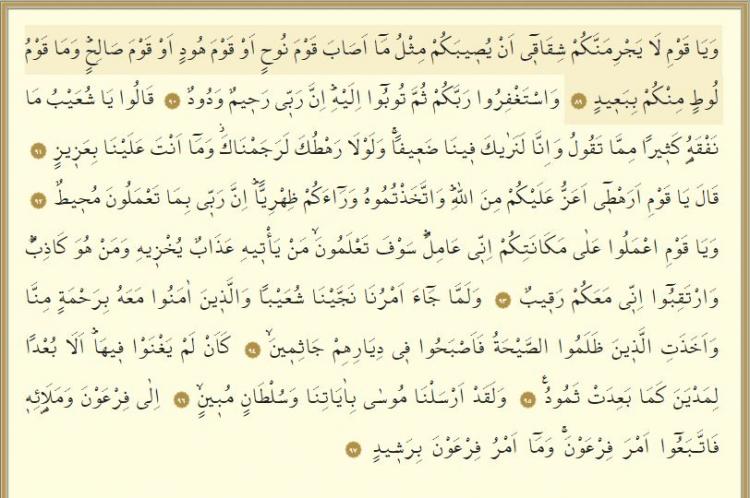 وَيَا قَوْمِ لَا يَجْرِمَنَّكُمْ شِقَاقٖٓي اَنْ يُصٖيبَكُمْ مِثْلُ مَٓا اَصَابَ قَوْمَ نُوحٍ اَوْ قَوْمَ هُودٍ اَوْ قَوْمَ صَالِحٍؕ وَمَا قَوْمُ
لُوطٍ مِنْكُمْ بِبَعٖيدٍ ﴿٨٩﴾ وَاسْتَغْفِرُوا رَبَّكُمْ ثُمَّ تُوبُٓوا اِلَيْهِؕ اِنَّ رَبّٖي رَحٖيمٌ وَدُودٌ ﴿٩٠﴾ قَالُوا يَا شُعَيْبُ مَا
نَفْقَهُ كَثٖيرًا مِمَّا تَقُولُ وَاِنَّا لَنَرٰيكَ فٖينَا ضَعٖيفًاۚ وَلَوْلَا رَهْطُكَ لَرَجَمْنَاكَؗ وَمَٓا اَنْتَ عَلَيْنَا بِعَزٖيزٍ ﴿٩١﴾
قَالَ يَا قَوْمِ اَرَهْطٖٓي اَعَزُّ عَلَيْكُمْ مِنَ اللّٰهِؕ وَاتَّخَذْتُمُوهُ وَرَٓاءَكُمْ ظِهْرِيًّاؕ اِنَّ رَبّٖي بِمَا تَعْمَلُونَ مُحٖيطٌ ﴿٩٢﴾
وَيَا قَوْمِ اعْمَلُوا عَلٰى مَكَانَتِكُمْ اِنّٖي عَامِلٌؕ سَوْفَ تَعْلَمُونَۙ مَنْ يَأْتٖيهِ عَذَابٌ يُخْزٖيهِ وَمَنْ هُوَ كَاذِبٌؕ
وَارْتَقِبُٓوا اِنّٖي مَعَكُمْ رَقٖيبٌ ﴿٩٣﴾ وَلَمَّا جَٓاءَ اَمْرُنَا نَجَّيْنَا شُعَيْبًا وَالَّذٖينَ اٰمَنُوا مَعَهُ بِرَحْمَةٍ مِنَّا
وَاَخَذَتِ الَّذٖينَ ظَلَمُوا الصَّيْحَةُ فَاَصْبَحُوا فٖي دِيَارِهِمْ جَاثِمٖينَۙ ﴿٩٤﴾ كَاَنْ لَمْ يَغْنَوْا فٖيهَاؕ اَلَا بُعْدًا
لِمَدْيَنَ كَمَا بَعِدَتْ ثَمُودُࣖ ﴿٩٥﴾ وَلَقَدْ اَرْسَلْنَا مُوسٰى بِاٰيَاتِنَا وَسُلْطَانٍ مُبٖينٍۙ ﴿٩٦﴾ اِلٰى فِرْعَوْنَ وَمَلَا۬ئِهٖ
فَاتَّبَعُٓوا اَمْرَ فِرْعَوْنَۚ وَمَٓا اَمْرُ فِرْعَوْنَ بِرَشٖيدٍ ﴿٩٧﴾